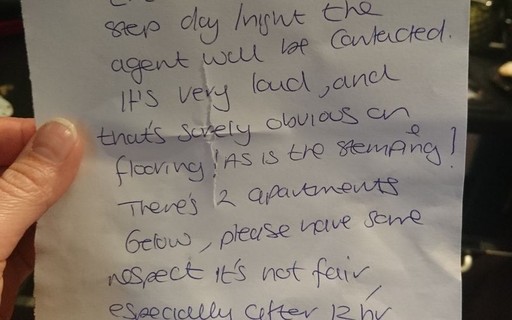 step day/night the
agent will be contacted.
It's very loud, and
that's surely obvious on
flooring! As is the stemping!
There's 2 apartments
below, please have some
respect it's not fair,
especially after 12 hr